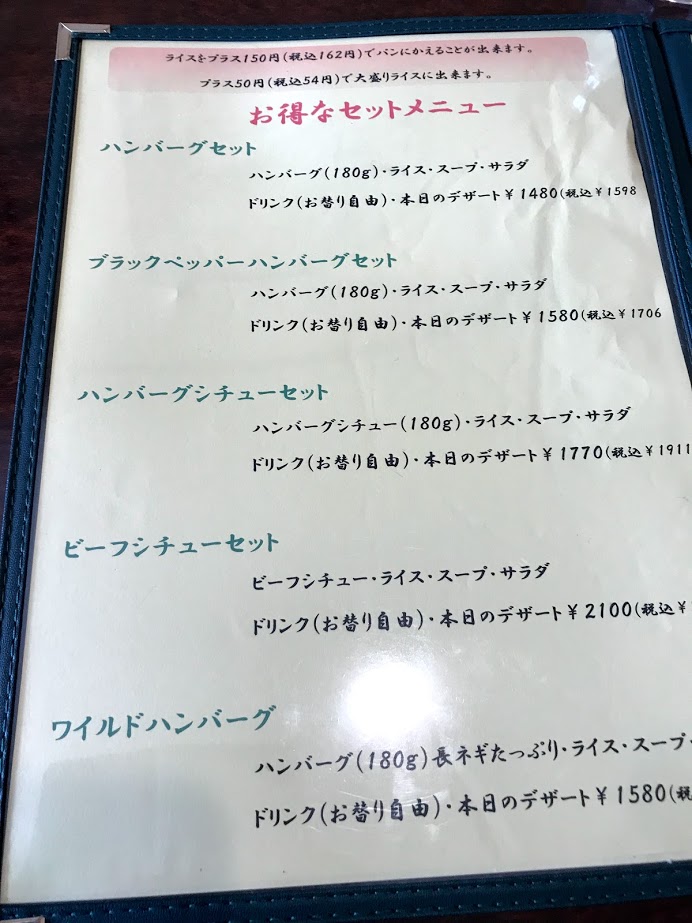 ライスをプラス150円(税込162円)でパンにかえることが出来ます。
プラス50円(税込54円)で大盛りライスに出来ます。
お得なセットメニュー
ハンバーグセット
ハンバーグ(180g)・ライス・スープ・サラダ
ドリンク(お替り自由)・本日のデザート¥1480(税込¥1598
ブラックペッパーハンバーグセット
ハンバーグ(180g)・ライス・スープ・サラダ
ドリンク(お替り自由)・本日のデザート¥1580(税込¥1706
ハンバーグシチューセット
ハンバーグシチュー(180g)・ライス・スープ・サラダ
ドリンク(お替り自由)・本日のデザート¥1770(税込¥1911
ビーフシチューセット
ビーフシチュー・ライス・スープ・サラダ
ドリンク(お替り自由)・本日のデザート¥2100(税込¥
ワイルドハンバーグ
ハンバーグ(180g)長ネギたっぷり・ライス・スープ・
ドリンク(お替り自由)・本日のデザート¥1580(税